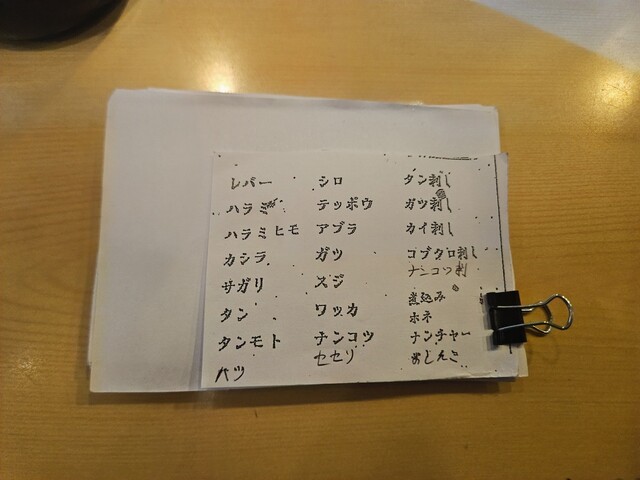 レバー
ハラミ
ハラミヒモ
カシラ
サガリ
タン
タンモト
ハツ
シロ
テッポウ
アブラ
ガツ
スジ
ワッカ
ナンコツ
セセリ
タン刺し
ガツ刺し
カイ刺し
コブクロ刺し
ナンコツ刺
煮込み
ホネ
ナンチャー
おしんこ